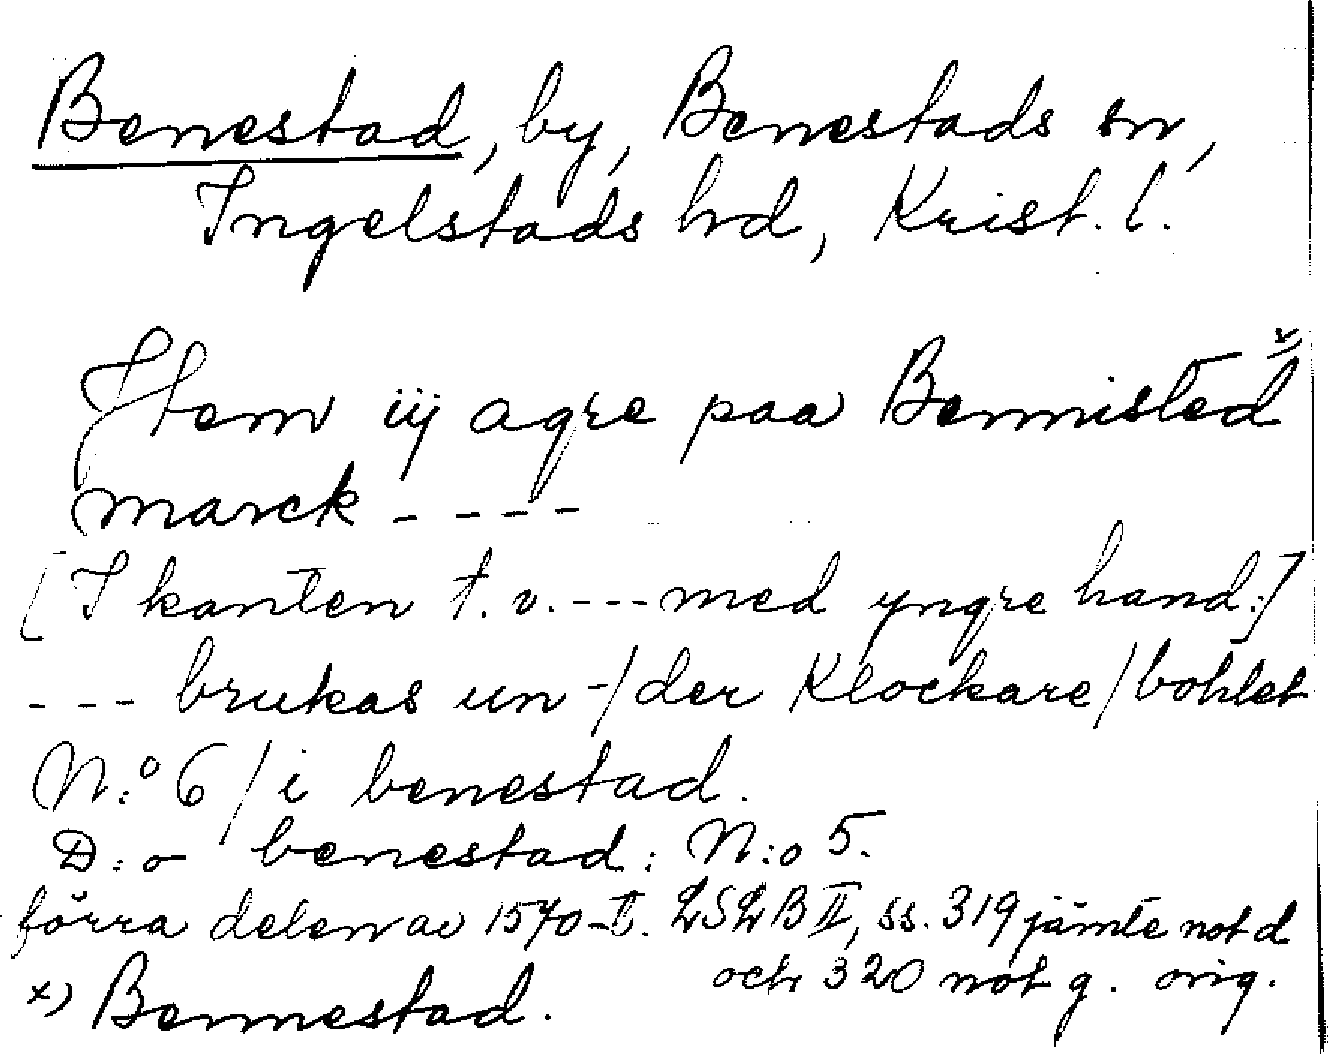 Benestad, by, Benestads sn,
Ingelstads hd, Krist. l.
Jtem iij agre paa Bennisted x)
marck ----
[I kanten t.v. --- med yngre hand:]
--- brukas un-/der Klockare/bohlet
N:o 6/i benestad.
D:o benestad: N:o 5.
förra delen av 1570-t. LSLB II, ss. 319 jämte not d
och 320 not g. orig.
x) Bennestad.